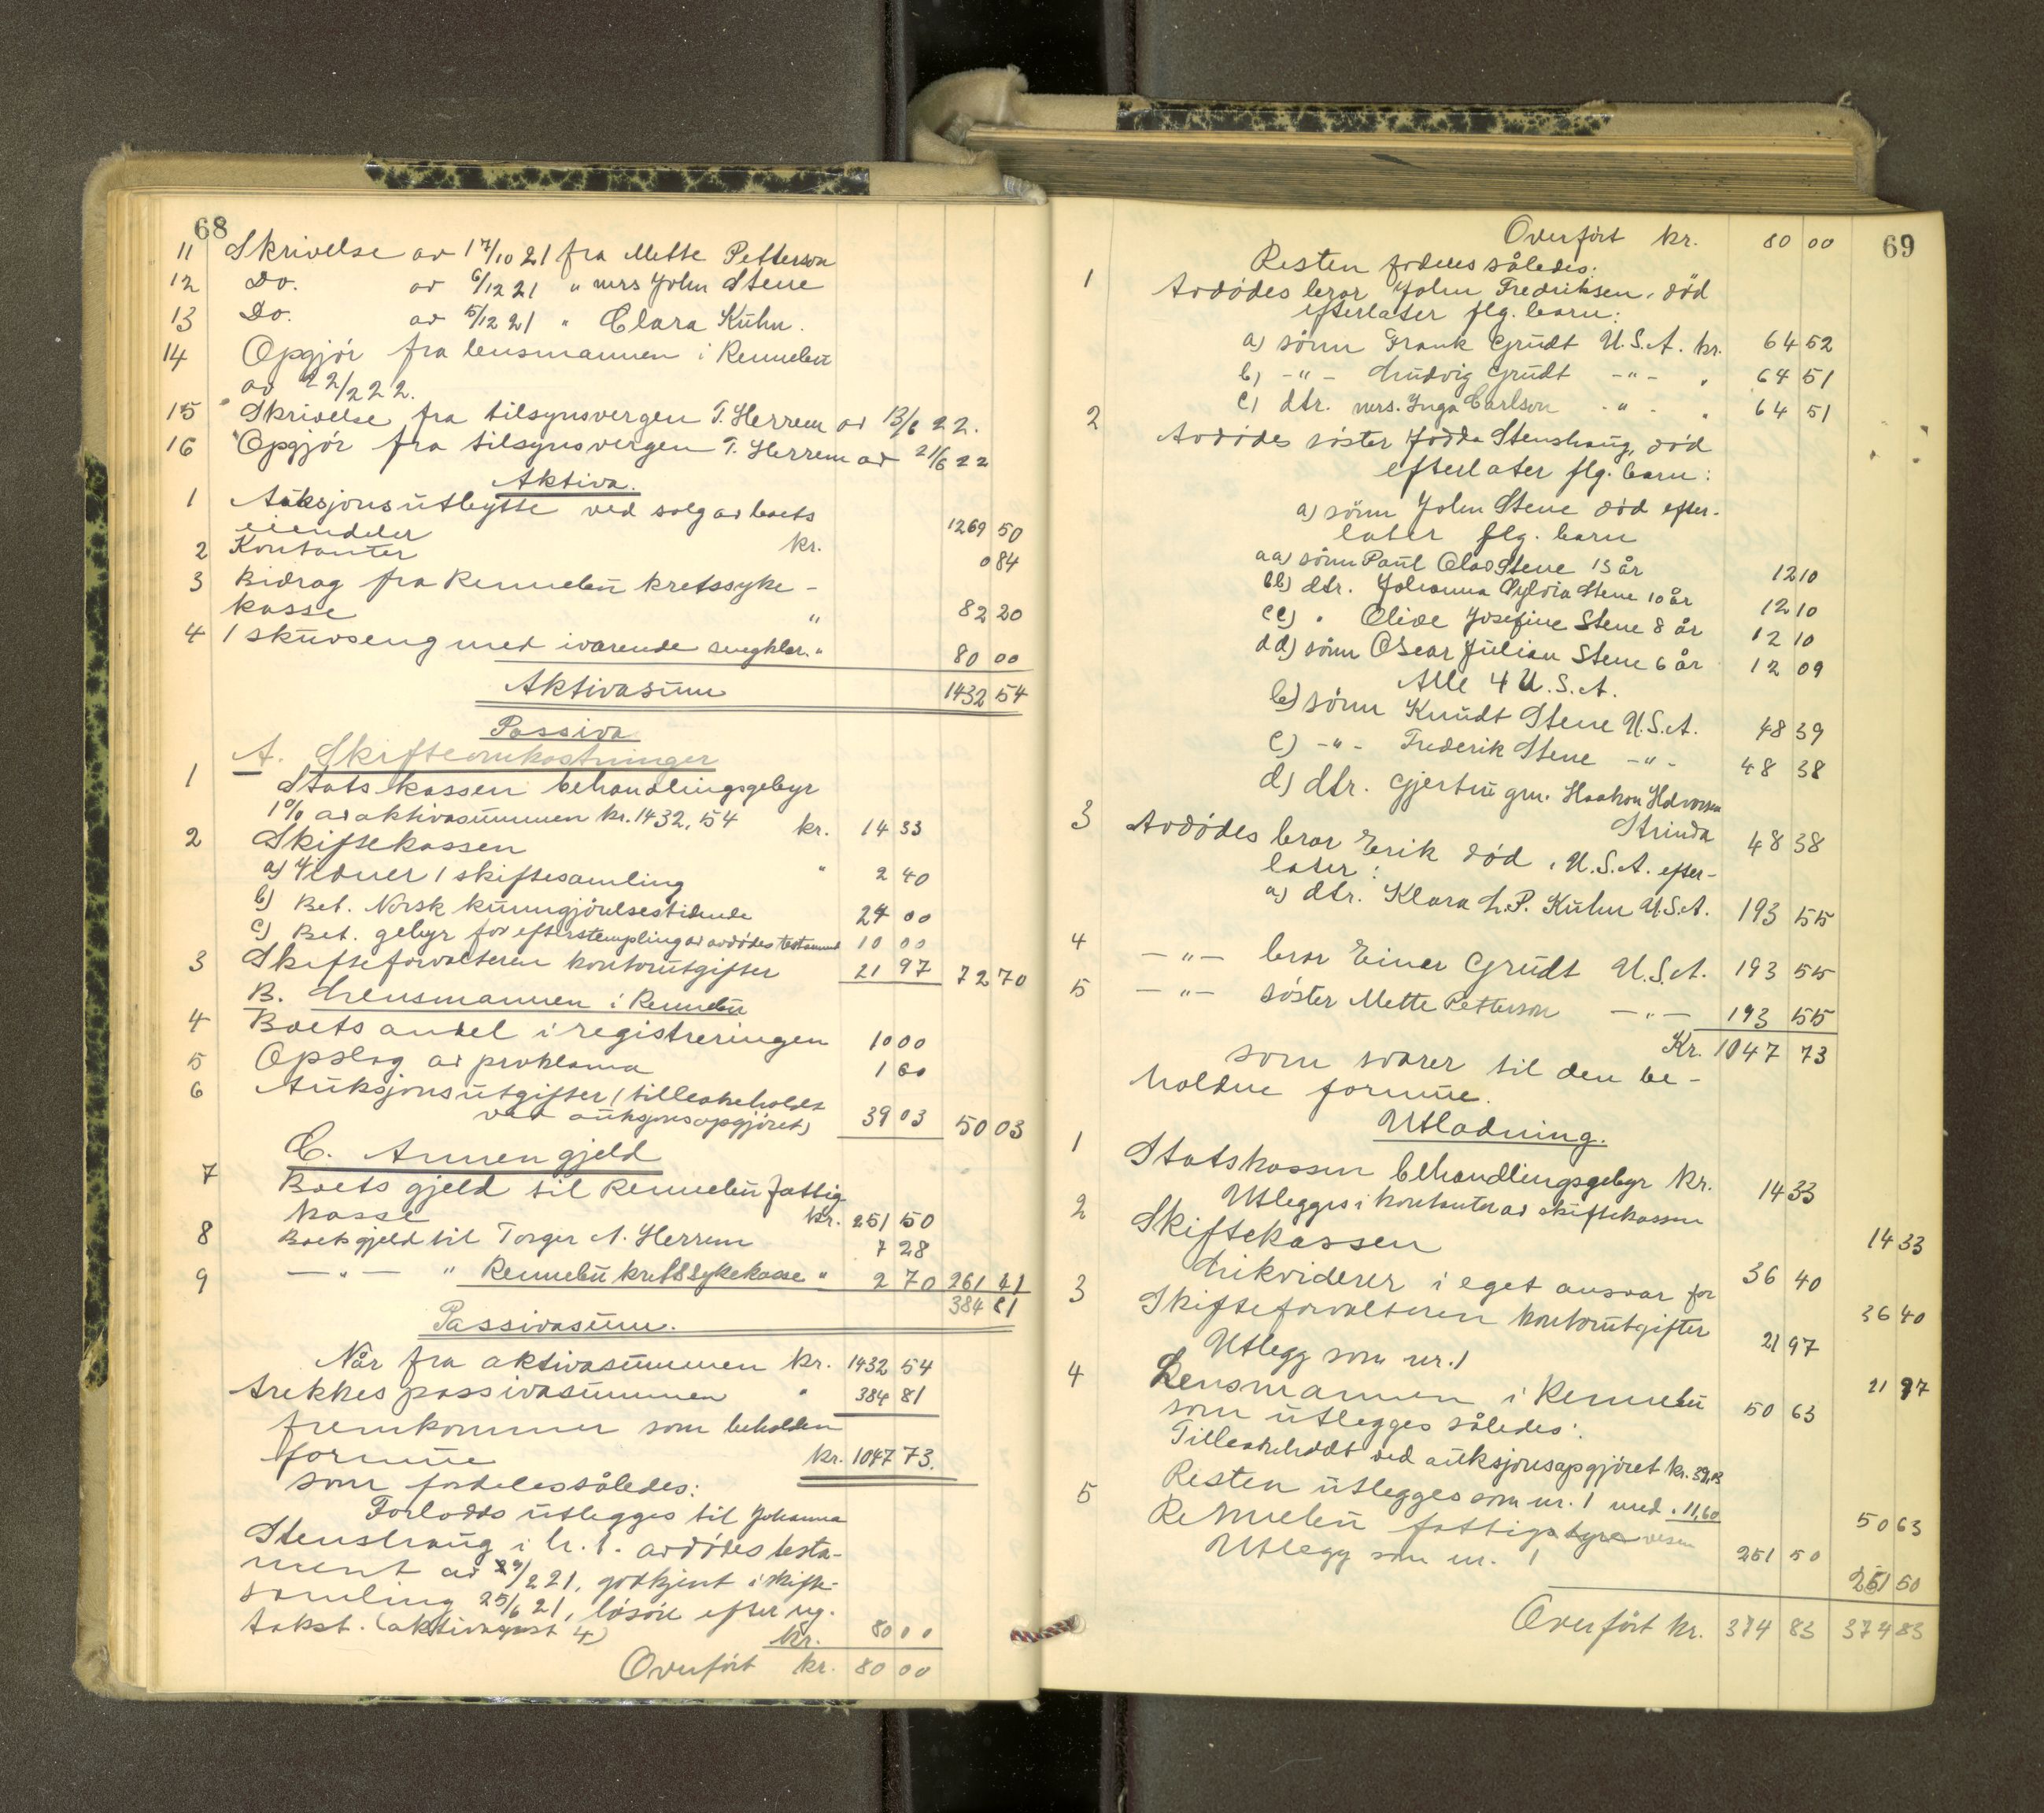 68
11 Skrivelse av 17/10 21 fra Mette Petterson
12 Do. av 6/12 21 " mrs John Stene
13 Do. av 5/12 21 " Clara Kühn.
14 Opgjör fra lensmannen i Rennebu
av 22/2 22.
15 Skrivelse fra tilsynsvergen T. Herrem av 13/6 22.
16 Opgjör fra tilsynsvergen T. Herrem av 21/6 22
Aktiva.
1 Auksjonsutbytte ved salg av boets
eiendeler kr. 1269 50
2 Kontanter 0 84
3 Bidrag fra Rennebu kretssyke-
kasse " 82 20
4 1 skuvseng med ivarende sengklær. " 80 00
Aktivasum 1432 54
Passiva
A. Skifteomkostninger
1 Statskassen behandlingsgebyr
1% av aktivasummen kr. 1432,54 kr. 14 33
2 Skiftekassen
a) Vidner 1 skiftesamling " 2 40
b) Bet. Norsk kunngjörelsestidende 24 00
c) Bet. gebyr for efterstempling av avdödes testament 10 00
3 Skifteforvalteren kontorutgifter 21 97 72 70
B. Lensmannen i Rennebu
4 Boets andel i registreringen 10 00
5 Opslag av proklama 1 60
6 Auksjonsutgifter (tilbakeholdt
ved auksjonsopgjöret) 39 03 50 03
C. Annen gjeld
7 Boets gjeld til Rennebu fattig
kasse kr. 251 50
8 Boets gjeld til Torger A. Herrem 7 28
9 — " — " Rennebu kretssykekasse " 2 70 261 41
384 81
Passivasum.
Når fra aktivasummen kr. 1432 54
trekkes passivasummen " 384 81
fremkommer som beholden
formue kr. 1047 73.
som fordeles således:
Forlodds utlegges til Johanna
Stenshaug i h. t. avdödes testa-
ment av 29/2 21, godkjent i skifte-
samling 25/6 21, lösöre efter reg.
takst. (aktivapost 4) kr. 80 00
Overfört kr. 80 00
69
Overfört kr. 80 00
Resten fordeles således:
1 Avdödes bror John Fredriksen, död
efterlater flg. barn:
a) sönn Frank Grudt U.S.A. kr. 64 52
b) - " - Ludvig Grudt - " - " 64 51
c) dtr. mrs. Inga Carlson - " - " 64 51
2 Avdödes söster Jodda Stenshaug, död
efterlater flg. barn:
a) sönn John Stene död efter-
later flg. barn
aa) sönn Paul Olav Stene 15 år 12 10
bb) dtr. Johanna Sylvia Stene 10 år 12 10
cc) " Olive Josefine Stene 8 år 12 10
dd) sönn Oscar Julian Stene 6 år 12 09
Alle 4 U.S.A.
b) sönn Knudt Stene U.S.A. 48 39
c) - " - Frederik Stene - " - 48 38
d) dtr. Gjertru gm. Haakon Halvorsen
Strinda 48 38
3 Avdödes bror Erik död i U.S.A. efter-
later:
a) dtr. Klara L.P. Kühn U.S.A. 193 55
4 — " — bror Einer Grudt U.S.A. 193 55
5 — " — söster Mette Petterson — " — 193 55
Kr. 1047 73
som svarer til den be-
holdne formue.
Utlodning.
1 Statskassen behandlingsgebyr kr. 14 33
Utlegges i kontanter av skiftekassen 14 33
2 Skiftekassen 36 40
Likviderer i eget ansvar for 36 40
3 Skifteforvalteren kontorutgifter 21 97
Utlegg som nr. 1 21 97
4 Lensmannen i Rennebu 50 63
som utlegges således:
Tilbakeholdt ved auksjonsopgjöret kr. 39,03
Resten utlegges som nr. 1 med " 11,60 50 63
5 Rennebu fattigstyre vesen 251 50
Utlegg som nr. 1 251 50
Overfört kr. 374 83 374 83